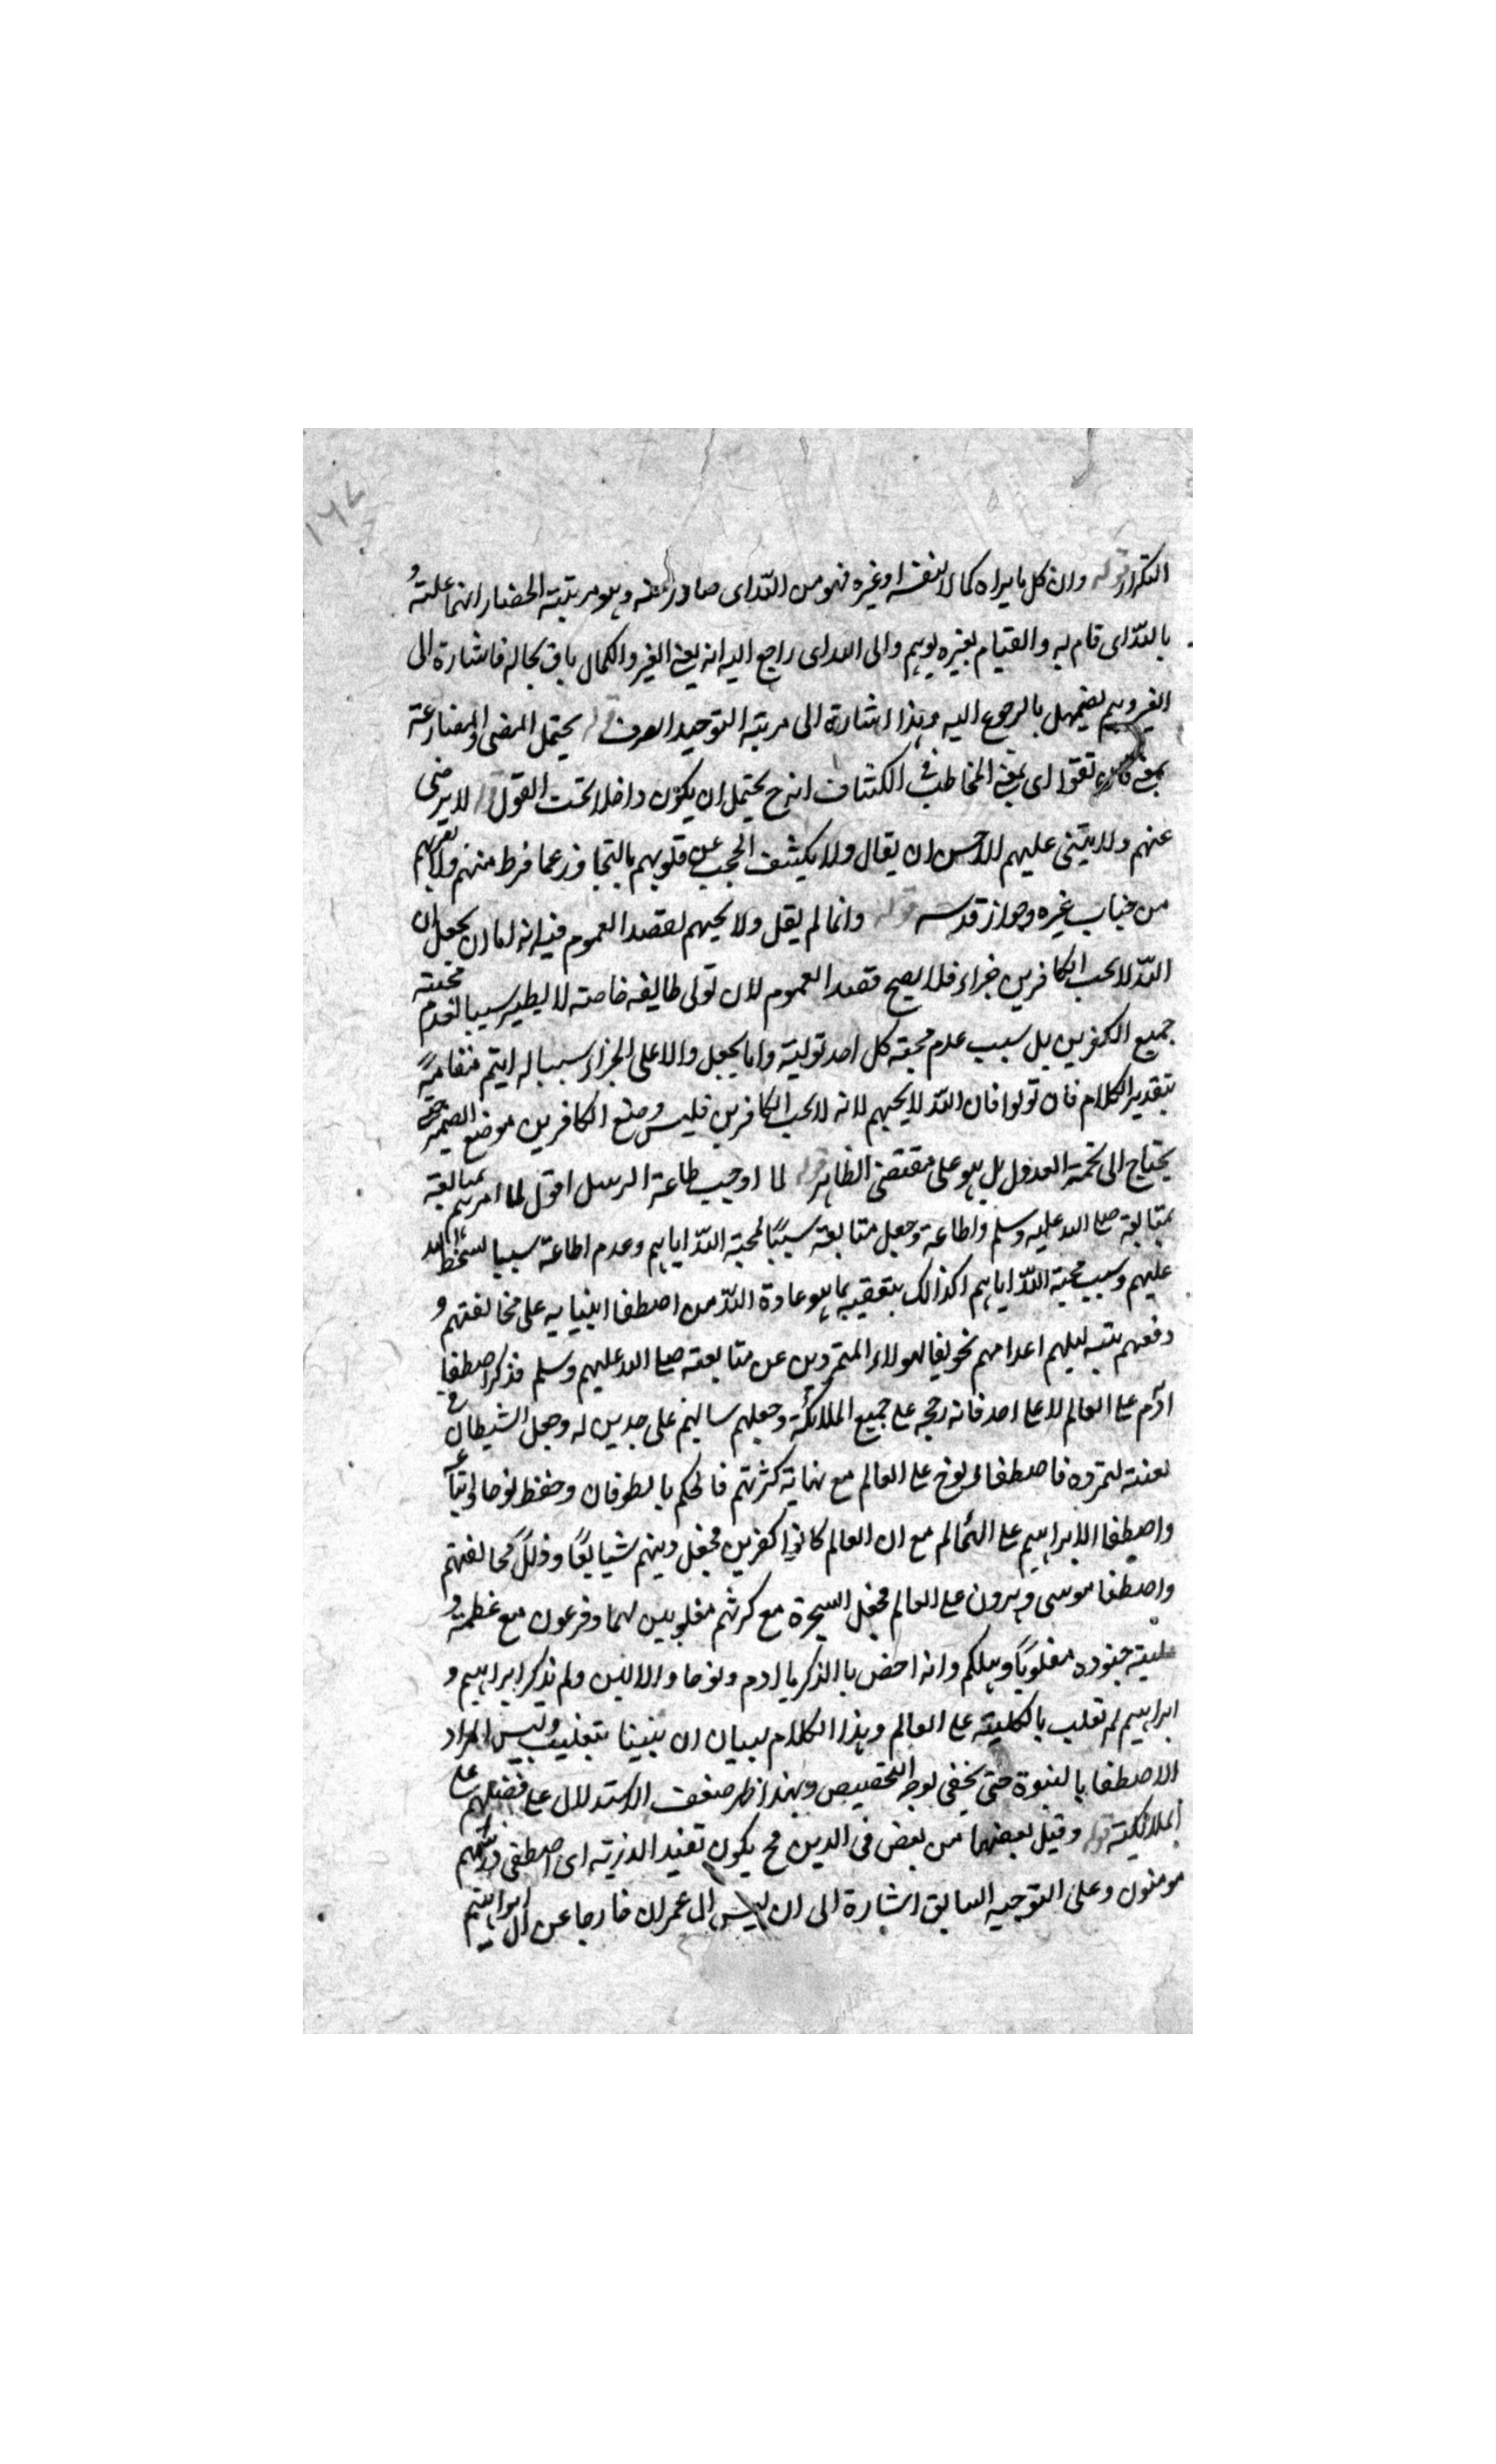 ١٦٧
التكرار قوله وان كل ما يراه كمالا لنفسه او غيره فهو من اللّه اى صادر عنه وهو مرتبته الحضار انما علته و
باللّه اى قام به والقيام بغيره يوهم والى الله اى راجع اليه انه يعنى الغير والكمال باق بحاله فاشارة الى
الغير وهم يضمحل بالرجوع اليه وهذا اشارة الى مرتبة التوحيد الصرف قوله يحتمل المضى والمضارعة
بمعنى تقوا اى بمعنى المخاطب فى الكشاف انه ح يحتمل ان يكون داخلا تحت القول قوله لا يرضى
عنهم ولا يثنى عليهم الاحسن ان يقال ولا يكشف الحجب عن قلوبهم بالتجاوز عما فرط منهم ولا يقربهم
من جناب غيره وجوار قدسه قوله وانما لم يقل ولا يحبهم لقصد العموم فيه انه اما ان يجعل ان
اللّه لا يحب الكافرين جزاء فلا يصح قصد العموم لان تولى طايفه خاصته لا يظهر سببا لعدم محبته
جميع الكفرين بل سبب عدم محبته كل احد توليته واما يجعل دالا على الجزاء سببا له ايتم مقامه
بتقدير الكلام فان تولوا فان اللّه لا يحبهم لانه لا يحب الكافرين فليس وضع الكافرين موضع الضمير حتى
يحتاج الى نكتة العدول بل هو على مقتضى الظاهر قوله لما اوجب طاعة الرسل اقول لما امرهم بمتابعة
بمتابعة صلى الله عليه وسلم واطاعة وجعل متابعته سببًا لمحبة اللّه اياهم وعدم اطاعة سببا لسخط الله
عليهم وسبب محبة اللّه اياهم اكد ذلك بتعقيبه بما هو عادة اللّه من اصطفا انبيايه على مخالفتهم و
دفعهم بتسليهم اعدامهم تخويفا لهولاء المتمردين عن متابعته صلى الله عليهم وسلم فذكر اصطفا
ادم على العالم لا على احد فانه رجحه على جميع الملائكة وجعلهم ساجدين له وجعل الشيطان فى
لعنته لتمرده فاصطفاء نوح على العالم مع نهاية كثرتهم فالحكم بالطوفان وحفظ نوحا واتباعه
واصطفا ال ابراهيم على العالم مع ان العالم كانوا كفرين فجعل دينهم شايعًا وذلل مخالفتهم
واصطفا موسى وهرون على العالم فجعل السحرة مع كثرتهم مغلوبين لهما وفرعون مع عظمته و
غلبته جنوده مغلوبًا وهلكم وانه احض بالذكر يا ادم ونوحا والالين ولم يذكر ابراهيم و
ابراهيم لم تغلب بالكليته على العالم وهذا الكلام لبيان ان نبينا بتغليب وليس المراد
الاصطفا بالنبوة حتى يخفى لوجه التخصيص وبهذا ظهر ضعف الاستدلال على فضلهم على
الملائكته قوله وقيل بعضها من بعض فى الدين فح يكون تقيد الذريته اى اصطفى وذريتهم
مومنون وعلى التوجيه السابق اشارة الى ان ليس ال عمران خارجا عن ال ابراهيم